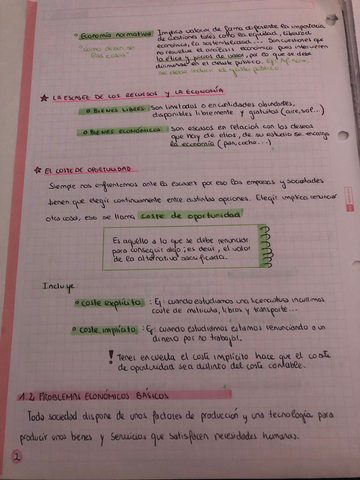 • Economía normativa: Implica valorar de forma diferente la importancia
de cuestiones tales como la equidad, libertad
económica, la sostenibilidad... Son cuestiones que
no resuelve el análisis económico pues intervienen
la ética y juicios de valor, por lo que se debe
en el debate público. Ej:
se debe reducir el gasto público.
"como deben ser
las cosas"
★ LA ESCASEZ DE LOS RECURSOS Y LA ECONOMÍA
• BIENES LIBRES: Son ilimitados o en cantidades abundantes,
disponibles libremente y gratuitos (aire, sol...)
• BIENES ECONÓMICOS: Son escasos en relación con los deseos
que hay de ellos, de su estudio se encarga
la economía (pan, coche...)
★ EL COSTE DE OPORTUNIDAD
Siempre nos enfrentamos ante la escasez por eso las empresas y sociedades
tienen que elegir continuamente entre distintas opciones. Elegir implica renunciar
otra cosa, eso se llama coste de oportunidad
Es aquello a lo que se debe renunciar
para conseguir algo; es decir, el valor
de la alternativa sacrificada.
Incluye:
• coste explícito: Ej: cuando estudiamos una licenciatura incurrimos
coste de matrícula, libros y transporte...
• coste implícito: Ej: cuando estudiamos estamos renunciando a un
dinero por no trabajar.
! Tener en cuenta el coste implícito hace que el coste
de oportunidad sea distinto del coste contable.
1.2 PROBLEMAS ECONÓMICOS BÁSICOS
Toda sociedad dispone de unos factores de producción y una tecnología para
producir unos bienes y servicios que satisfacen necesidades humanas.
1